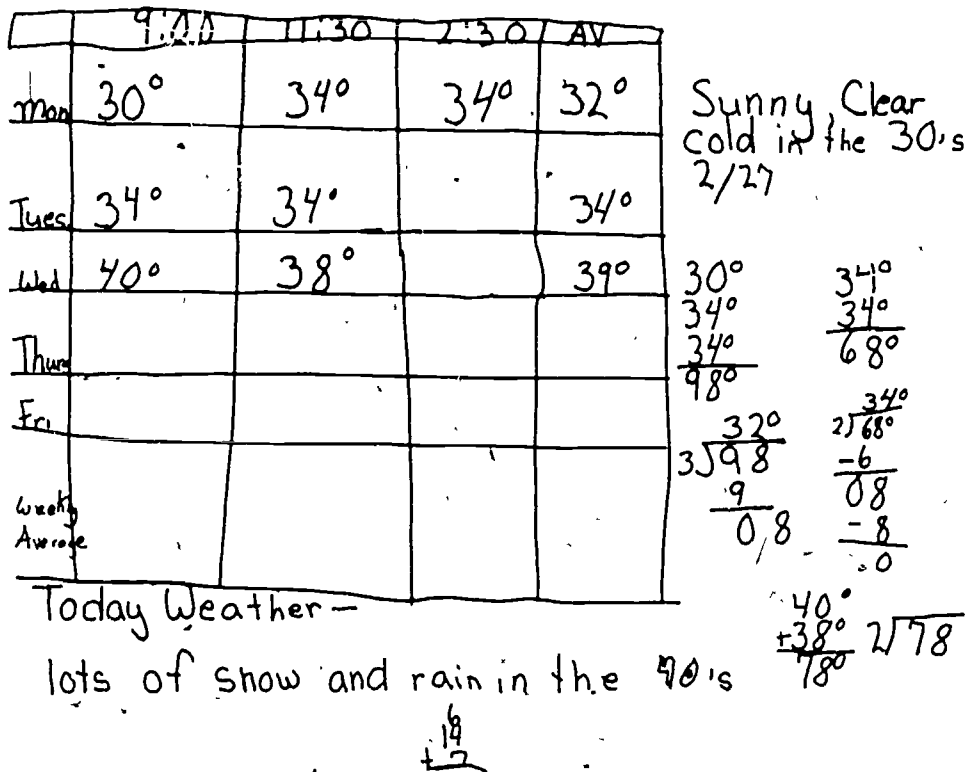 9:00 11:30 2:30 AV
Mon 30° 34° 34° 32°
Tues 34° 34° 34°
Wed 40° 38° 39°
Thurs
Fri
Weekly
Average
Sunny, Clear
cold in the 30's
2/27
30°
34°
34°
98°
32°
3)98
9
08
34°
34°
68°
34°
2)68°
-6
08
-8
0
40°
+38°
78°
2)78
Today Weather-
lots of snow and rain in the